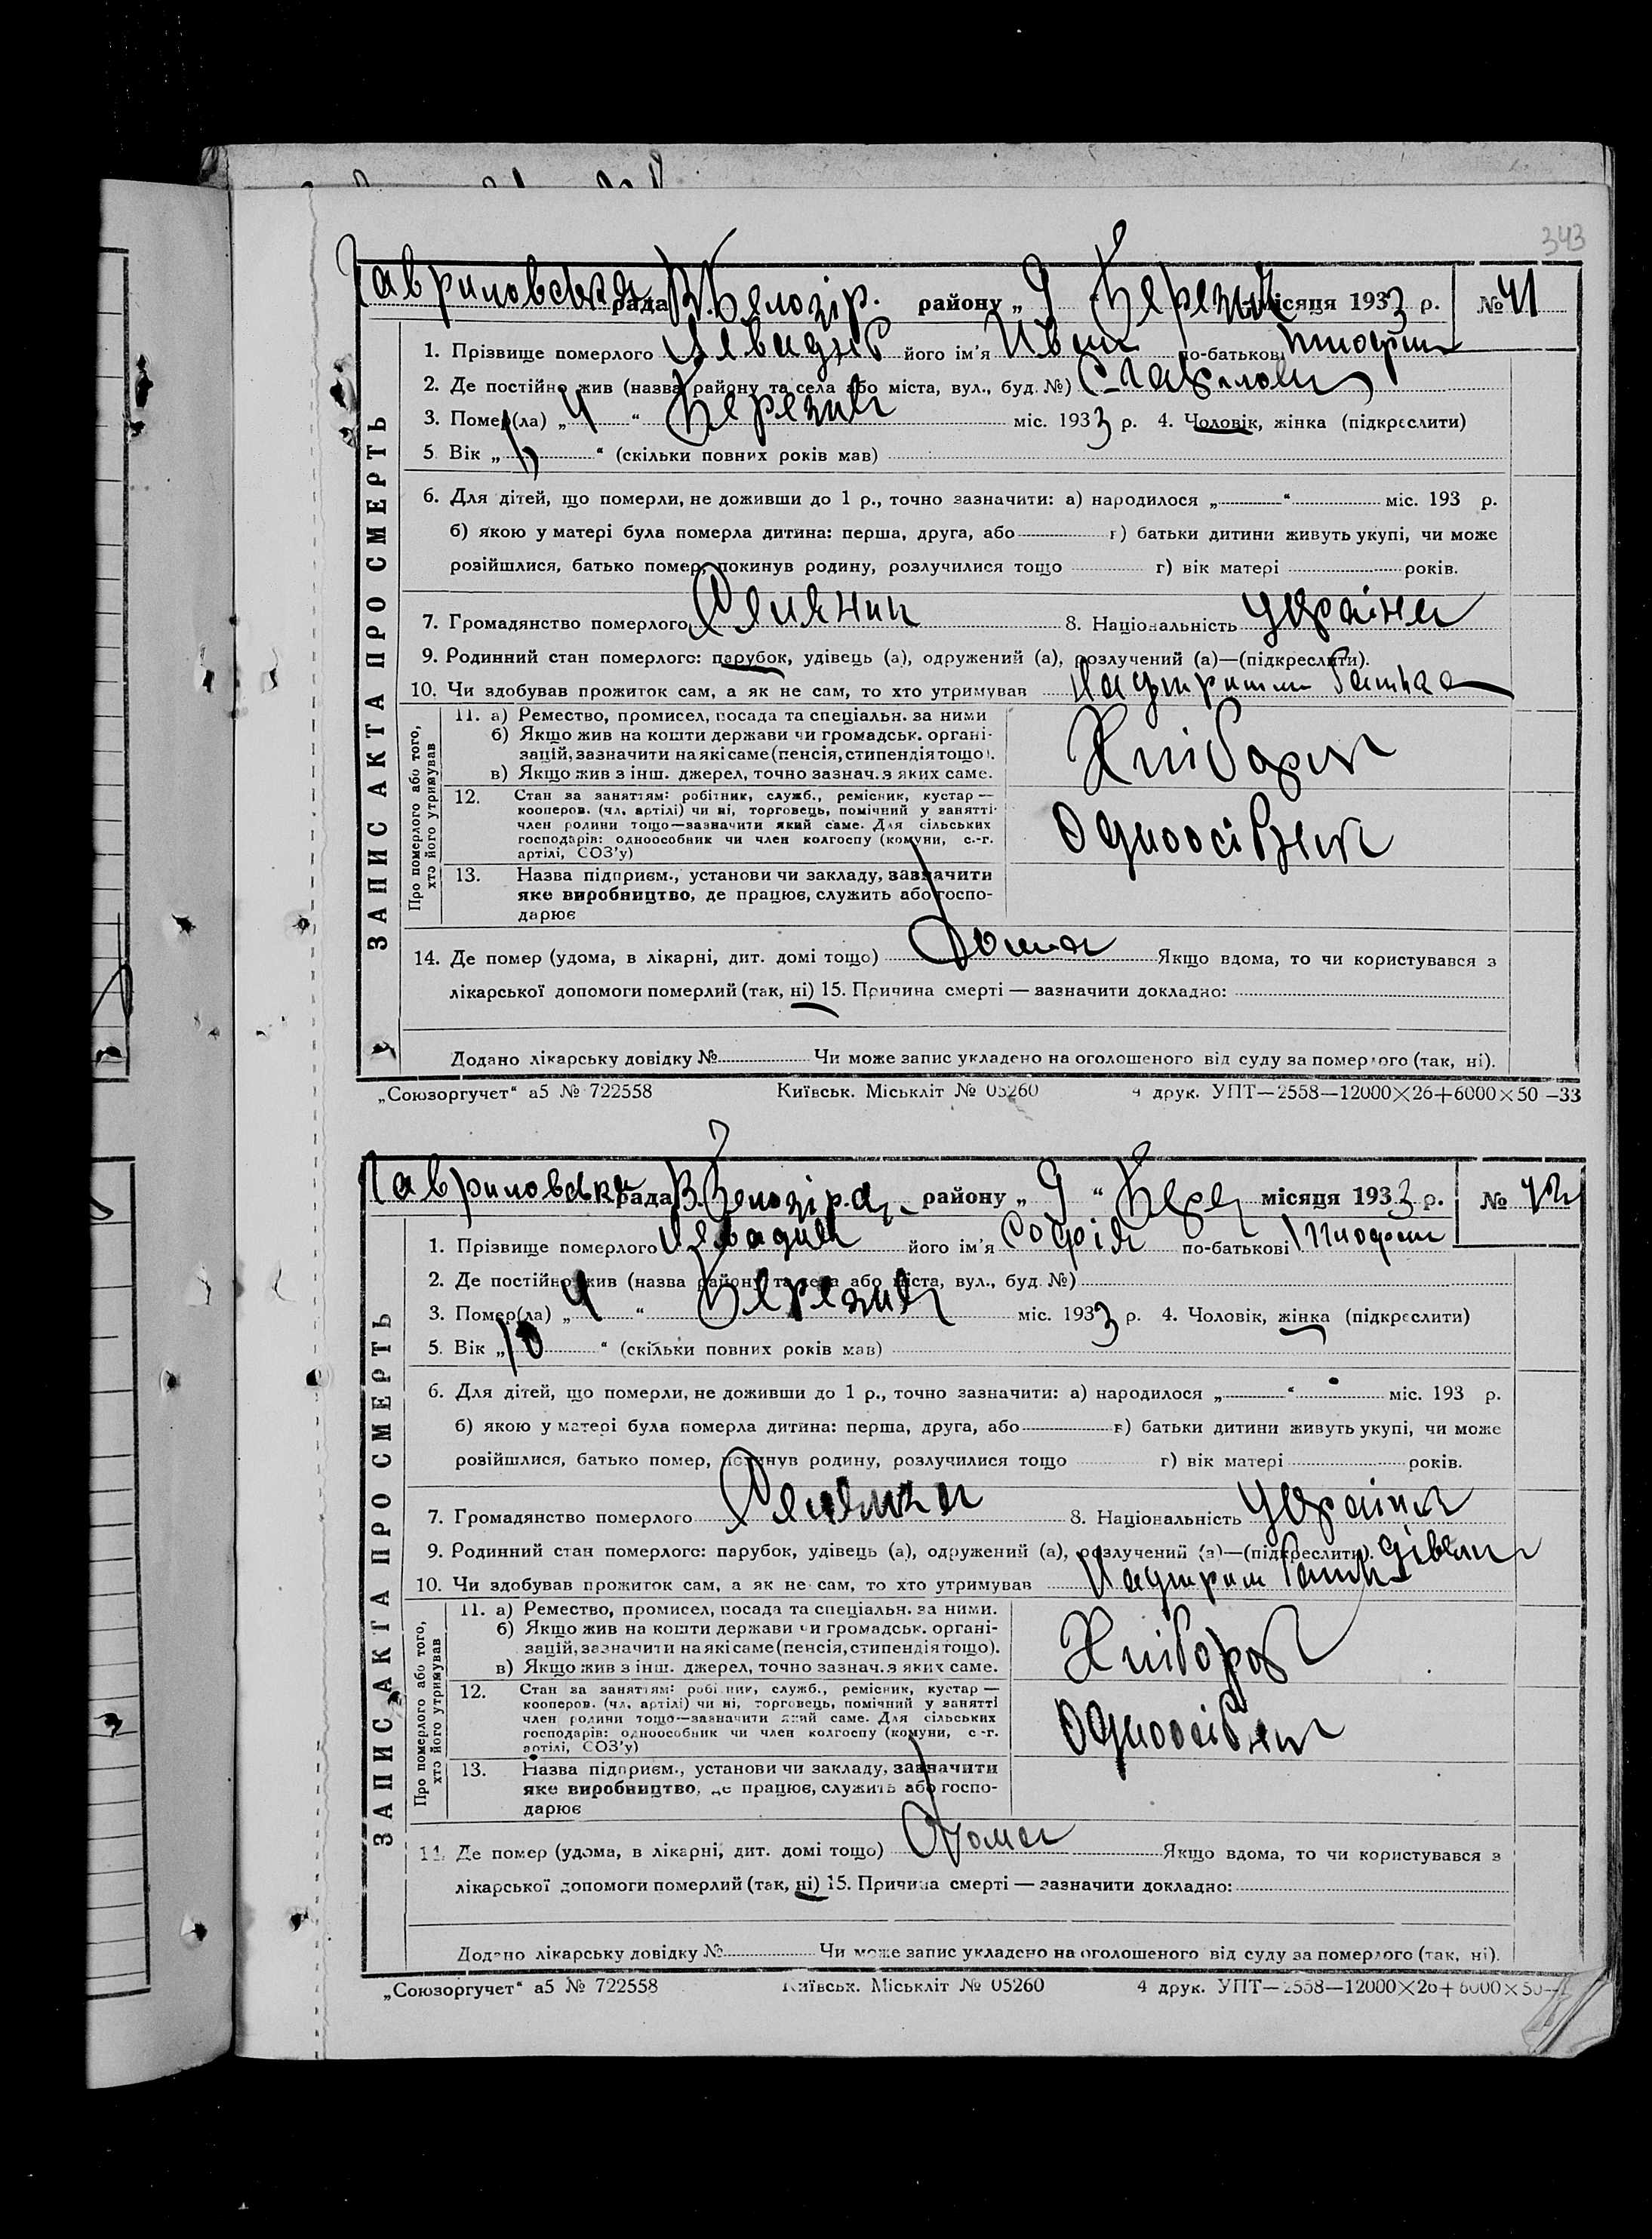 343
Гавриловська рада В. Белозір. району „ 9 “ Березня місяця 1933 р. № 41
ЗАПИС АКТА ПРО СМЕРТЬ
1. Прізвище померлого його ім'я Иван по-батькові
2. Де постійно жив (назва району та села або міста, вул., буд. №) с. Гаврилов
3. Помер(ла) „ 4 “ Березня міс. 1933 р. 4. Чоловік, жінка (підкреслити)
5. Вік „ “ (скільки повних років мав)
6. Для дітей, що померли, не доживши до 1 р., точно зазначити: а) народилося „ “ міс. 193 р.
б) якою у матері була померла дитина: перша, друга, або в) батьки дитини живуть укупі, чи може
розійшлися, батько помер, покинув родину, розлучилися тощо г) вік матері років.
7. Громадянство померлого Селянин 8. Національність Україне
9. Родинний стан померлого: парубок, удівець (а), одружений (а), розлучений (а)—(підкреслити).
10. Чи здобував прожиток сам, а як не сам, то хто утримував батька
Про померлого або того, хто його утримував
11. а) Ремество, промисел, посада та спеціальн. за ними
б) Якщо жив на кошти держави чи громадськ. органі-
зацій, зазначити на які саме (пенсія, стипендія тощо).
в) Якщо жив з інш. джерел, точно зазнач. з яких саме.
Хлібороб
12. Стан за заняттям: робітник, служб., ремісник, кустар —
кооперов. (чл. артілі) чи ні, торговець, помічний у занятті
член родини тощо—зазначити який саме. Для сільських
господарів: одноособник чи член колгоспу (комуни, с.-г.
артілі, СОЗ'у)
Одноосібник
13. Назва підприєм., установи чи закладу, зазначити
яке виробництво, де працює, служить або госпо-
дарює
14. Де помер (удома, в лікарні, дит. домі тощо) Дома Якщо вдома, то чи користувався з
лікарської допомоги померлий (так, ні) 15. Причина смерті — зазначити докладно:
Додано лікарську довідку № Чи може запис укладено на оголошеного від суду за померлого (так, ні).
„Союзоргучет“ а5 № 722558 Київськ. Міськліт № 05260 4 друк. УПТ—2558—12000×26+6000×50—33
Гавриловська рада В. Белозір. району „ 9 “ Берез місяця 1933 р. № 42
ЗАПИС АКТА ПРО СМЕРТЬ
1. Прізвище померлого його ім'я Софія по-батькові
2. Де постійно жив (назва району та села або міста, вул., буд. №)
3. Помер(ла) „ 4 “ Березня міс. 1933 р. 4. Чоловік, жінка (підкреслити)
5. Вік „ 10 “ (скільки повних років мав)
6. Для дітей, що померли, не доживши до 1 р., точно зазначити: а) народилося „ “ міс. 193 р.
б) якою у матері була померла дитина: перша, друга, або в) батьки дитини живуть укупі, чи може
розійшлися, батько помер, покинув родину, розлучилися тощо г) вік матері років.
7. Громадянство померлого Селянка 8. Національність Українка
9. Родинний стан померлого: парубок, удівець (а), одружений (а), розлучений (а)—(підкреслити).
10. Чи здобував прожиток сам, а як не сам, то хто утримував
Про померлого або того, хто його утримував
11. а) Ремество, промисел, посада та спеціальн. за ними.
б) Якщо жив на кошти держави чи громадськ. органі-
зацій, зазначити на які саме (пенсія, стипендія тощо).
в) Якщо жив з інш. джерел, точно зазнач. з яких саме.
Хлібороб
12. Стан за заняттям: робітник, служб., ремісник, кустар —
кооперов. (чл. артілі) чи ні, торговець, помічний у занятті
член родини тощо—зазначити який саме. Для сільських
господарів: одноособник чи член колгоспу (комуни, с.-г.
артілі, СОЗ'у)
Одноосібник
13. Назва підприєм., установи чи закладу, зазначити
яке виробництво, де працює, служить або госпо-
дарює
14. Де помер (удома, в лікарні, дит. домі тощо) Дома Якщо вдома, то чи користувався з
лікарської допомоги померлий (так, ні) 15. Причина смерті — зазначити докладно:
Додано лікарську довідку № Чи може запис укладено на оголошеного від суду за померлого (так, ні).
„Союзоргучет“ а5 № 722558 Київськ. Міськліт № 05260 4 друк. УПТ—2558—12000×26+6000×50—